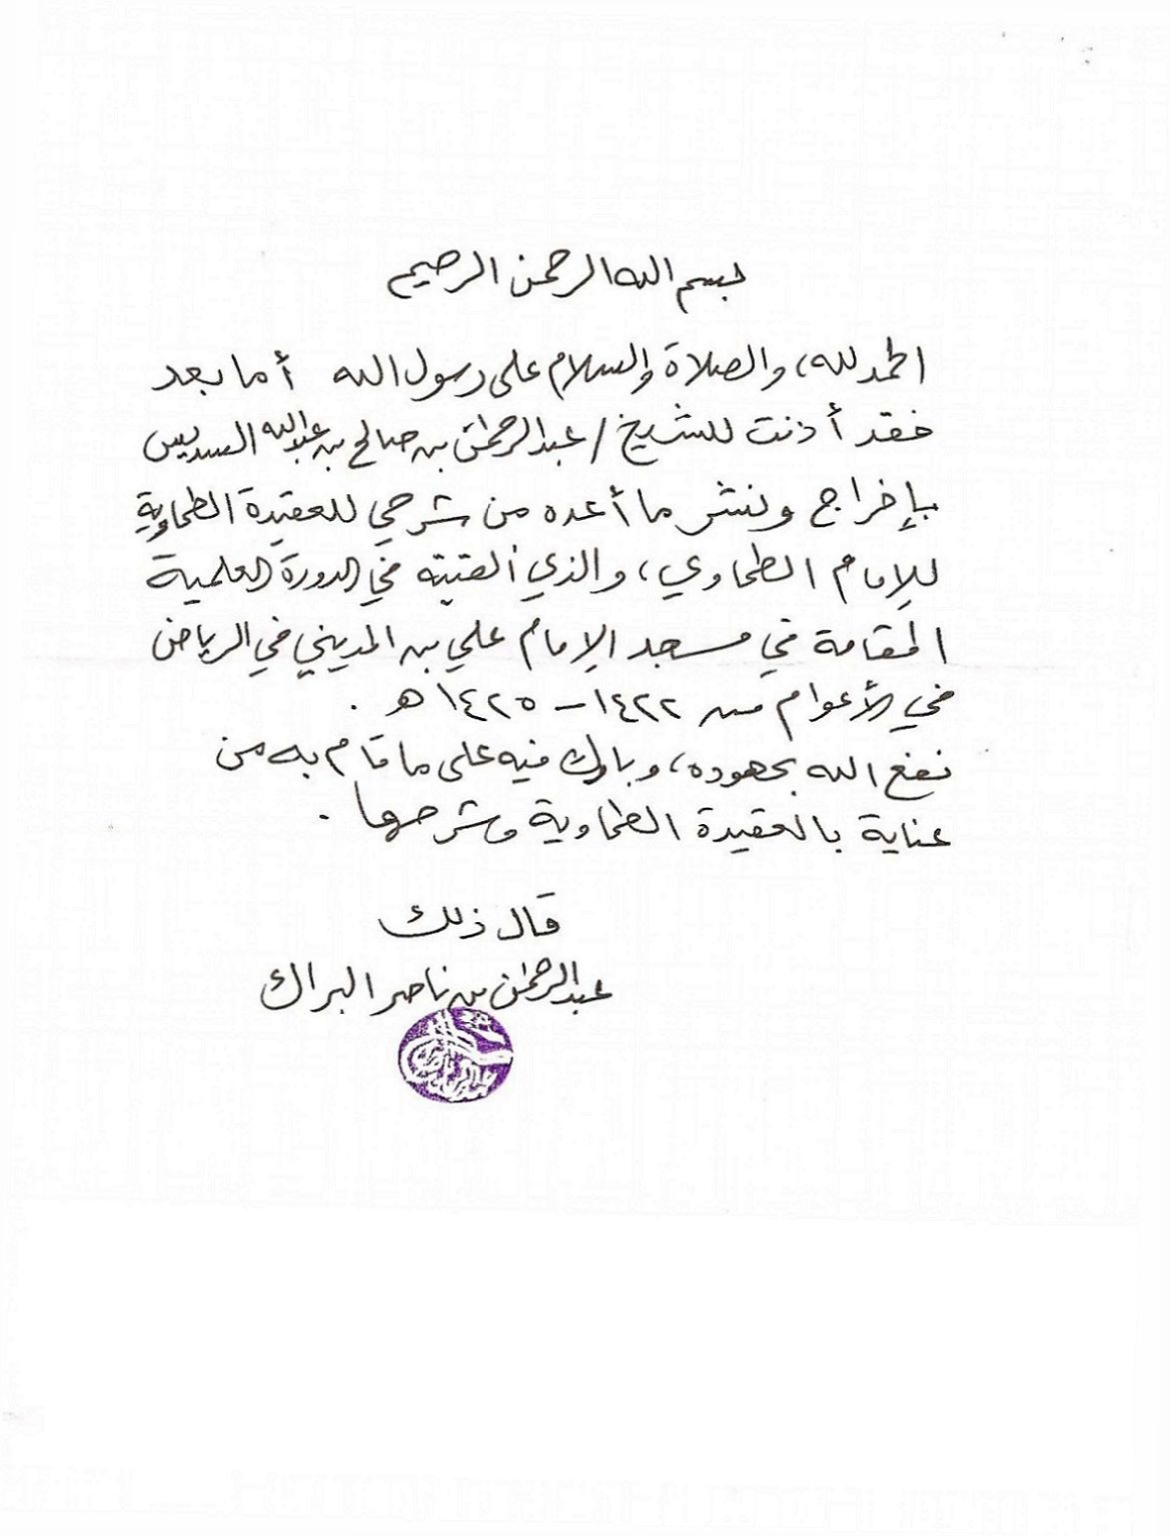 بسم الله الرحمن الرحيم
الحمد لله، والصلاة والسلام على رسول الله أما بعد
فقد أذنت للشيخ / عبدالرحمن بن صالح بن عبدالله السديس
بإخراج ونشر ما أعده من شرحي للعقيدة الطحاوية
للإمام الطحاوي، والذي ألقيته في الدورة العلمية
المقامة في مسجد الإمام علي بن المديني في الرياض
في الأعوام من ١٤٢٢ - ١٤٢٥ هـ .
نفع الله بجهوده، وبارك فيه على ما قام به من
عناية بالعقيدة الطحاوية وشرحها .
قال ذلك
عبدالرحمن بن ناصر البراك